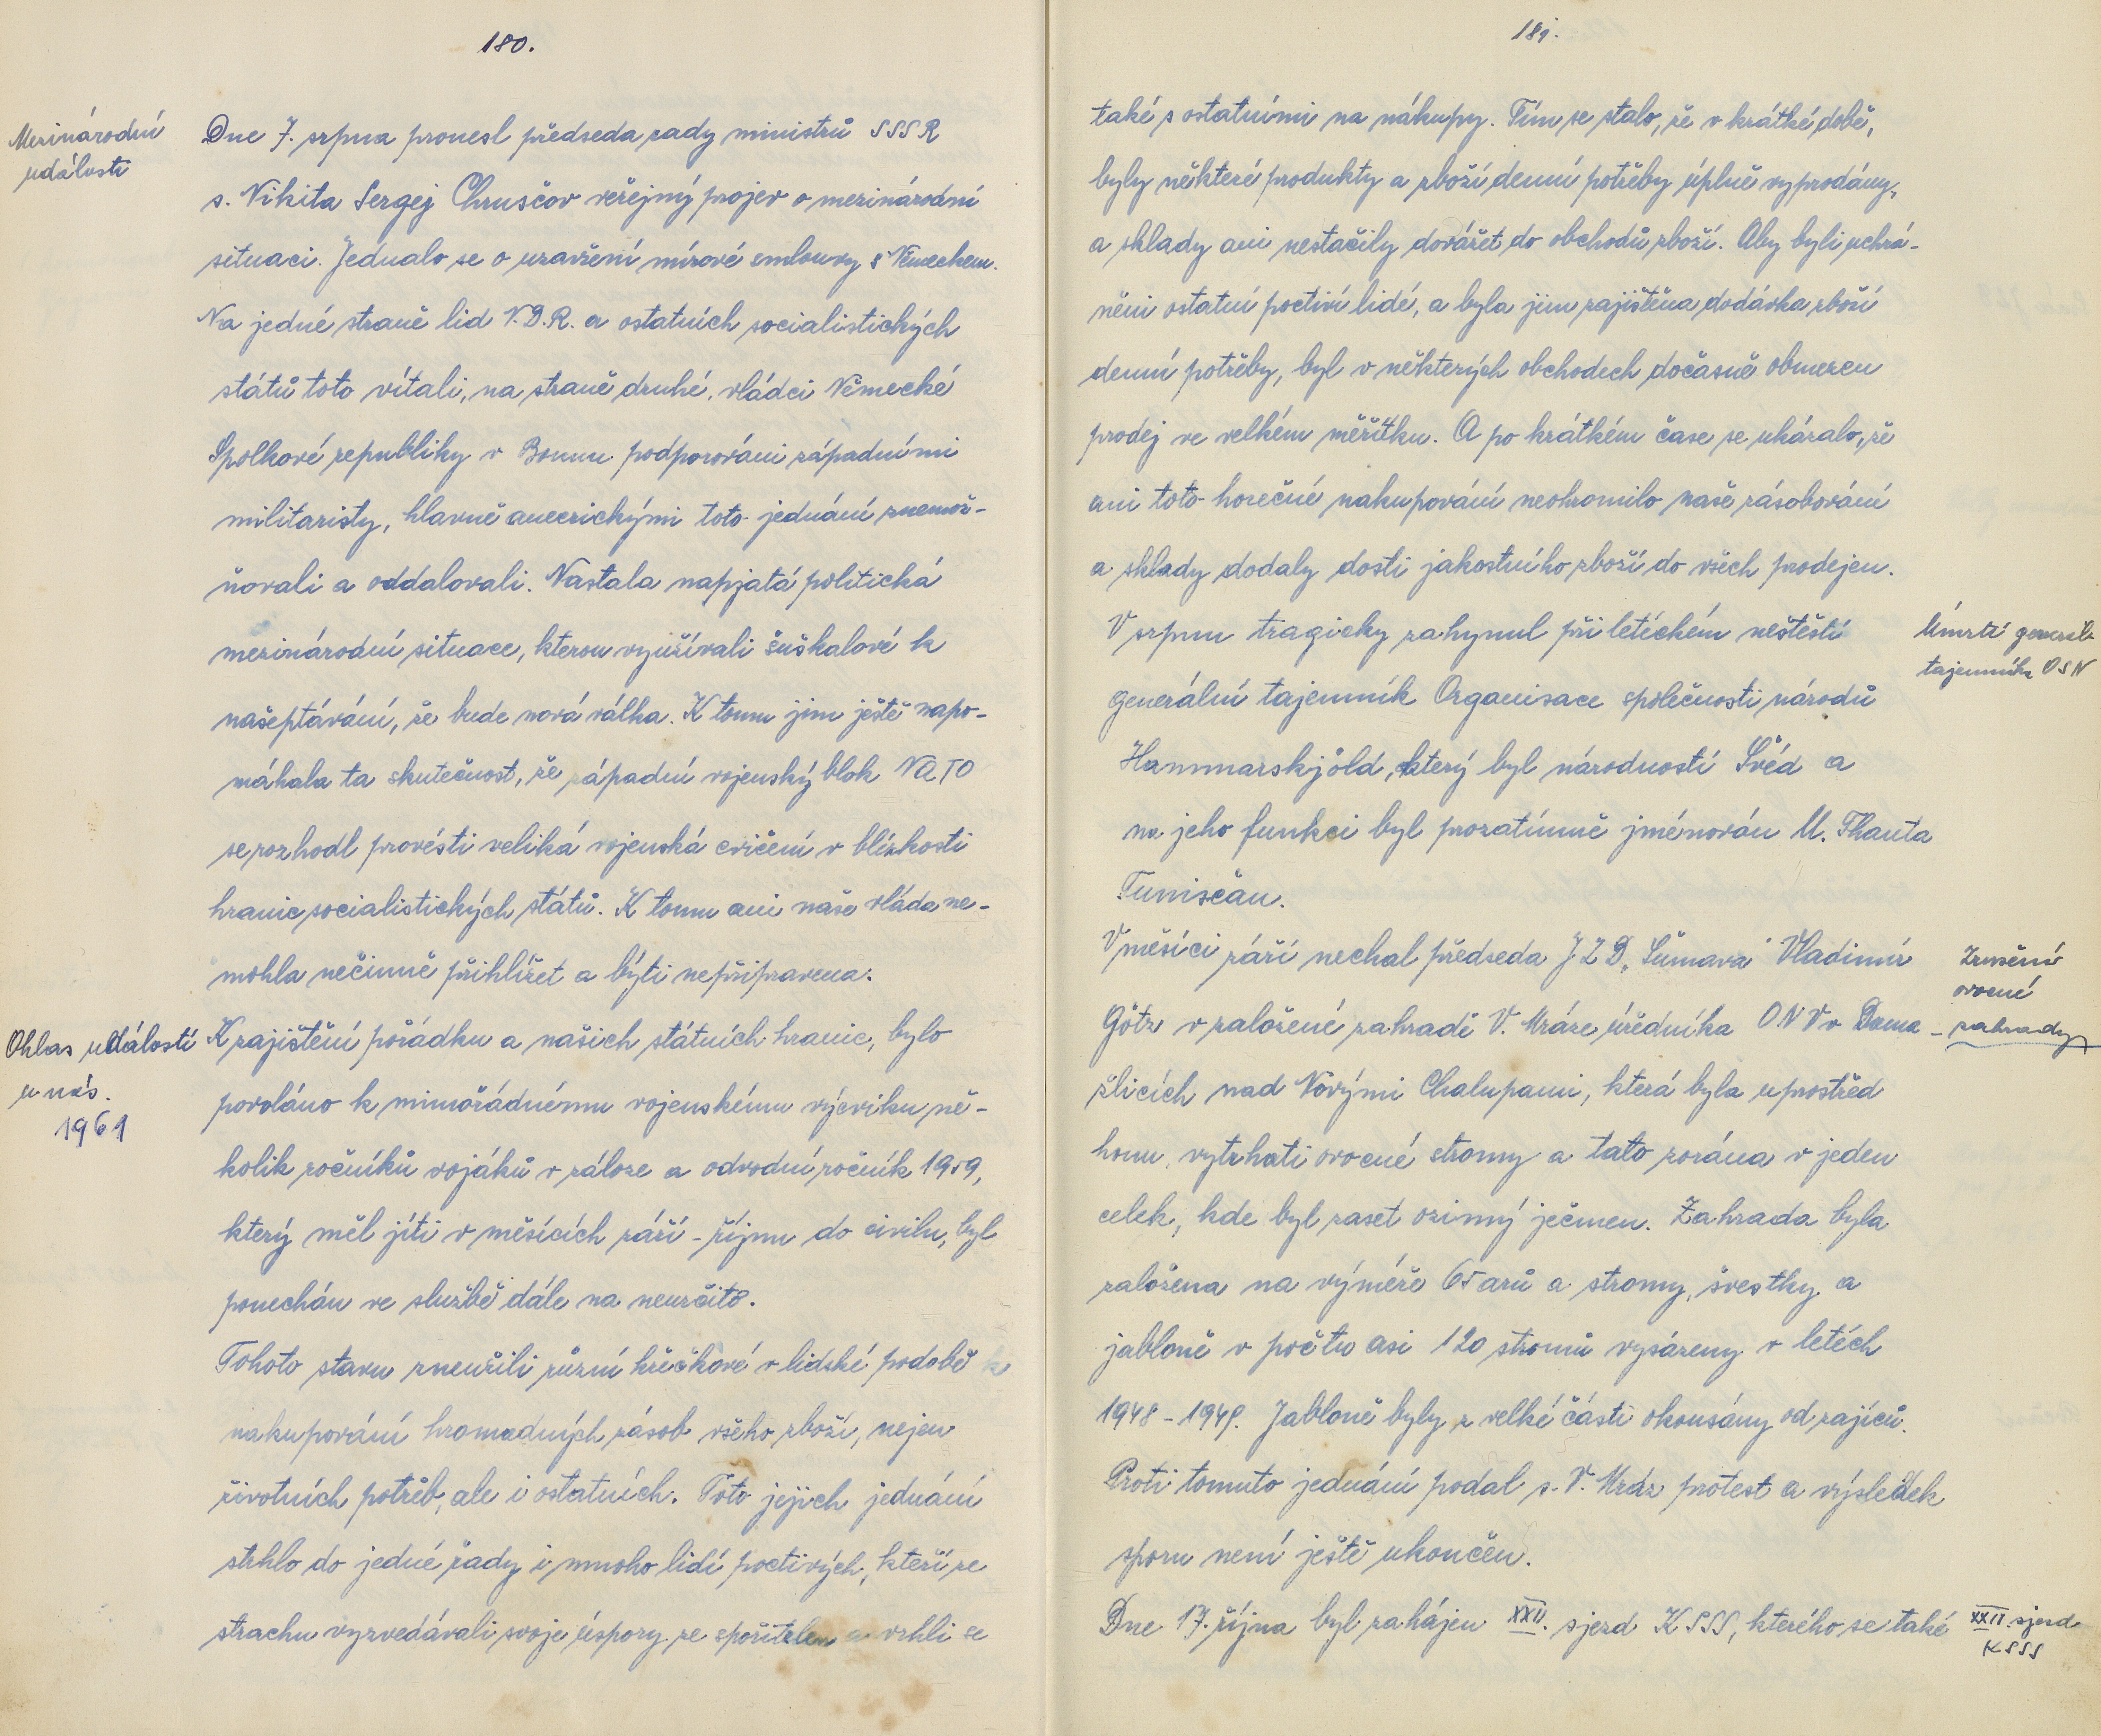 180.
Mezinárodní
události
Dne 7. srpna pronesl předseda rady ministrů SSSR
s. Nikita Sergej Chruščov veřejný projev o mezinárodní
situaci. Jednalo se o uzavření mírové smlouvy s Německem.
Na jedné straně lid N.D.R. a ostatních socialistických
států toto vítali, na straně druhé, vládci Německé
Spolkové republiky v Bonnu podporováni západními
militaristy, hlavně americkými toto jednání znemož-
ňovali a oddalovali. Nastala napjatá politická
mezinárodní situace, kterou využívali šuškalové k
našeptávání, že bude nová válka. K tomu jim ještě napo-
máhala ta skutečnost, že západní vojenský blok NATO
se rozhodl provésti veliká vojenská cvičení v blízkosti
hranic socialistických států. K tomu ani naše vláda ne-
mohla nečinně přihlížet a býti nepřipravena.
Ohlas událostí
u nás.
1961
K zajištění pořádku a našich státních hranic, bylo
povoláno k mimořádnému vojenskému výcviku ně-
kolik ročníků vojáků v záloze a odvodní ročník 1959,
který měl jíti v měsících září - říjnu do civilu, byl
ponechán ve službě dále na neurčito.
Tohoto stavu zneužili různí křečkové v lidské podobě k
nakupování hromadných zásob všeho zboží, nejen
životních potřeb, ale i ostatních. Toto jejich jednání
strhlo do jedné řady i mnoho lidí poctivých, kteří ze
strachu vyzvedávali svoje úspory ze spořitelen a vrhli se
181.
také s ostatními na nákupy. Tím se stalo, že v krátké době,
byly některé produkty a zboží denní potřeby úplně vyprodány,
a sklady ani nestačily dovážet do obchodů zboží. Aby byli uchrá-
něni ostatní poctiví lidé, a byla jim zajištěna dodávka zboží
denní potřeby, byl v některých obchodech dočasně obmezen
prodej ve velkém měřítku. A po krátkém čase se ukázalo, že
ani toto horečné nakupování neohromilo naše zásobování
a sklady dodaly dosti jakostního zboží do všech prodejen.
V srpnu tragicky zahynul při letíckém neštěstí
generální tajemník Organisace společnosti národů
Hammarskjöld, který byl národností Švéd a
na jeho funkci byl prozatímně jménován U. Thanta
Tunisčan.
Úmrtí generál.
tajemníka OSN
V měsíci září nechal předseda JZD „Šumava" Vladimír
Götz v založené zahradě V. Mráze úředníka ONV v Doma-
žlicích nad Novými Chalupami, která byla uprostřed
honu, vytrhati ovocné stromy a tato zorána v jeden
celek, kde byl zaset ozimný ječmen. Zahrada byla
založena na výměře 65 arů a stromy, švestky a
jabloně v počtu asi 120 stromů vysázeny v letéch
1948 - 1949. Jabloně byly z velké části okousány od zajíců.
Proti tomuto jednání podal s. V. Mráz protest a výsledek
sporu není ještě ukončen.
Zrušení
ovocné
zahrady
Dne 17. října byl zahájen XXII. sjezd KSSS, kterého se také
XXII. sjezd
KSSS